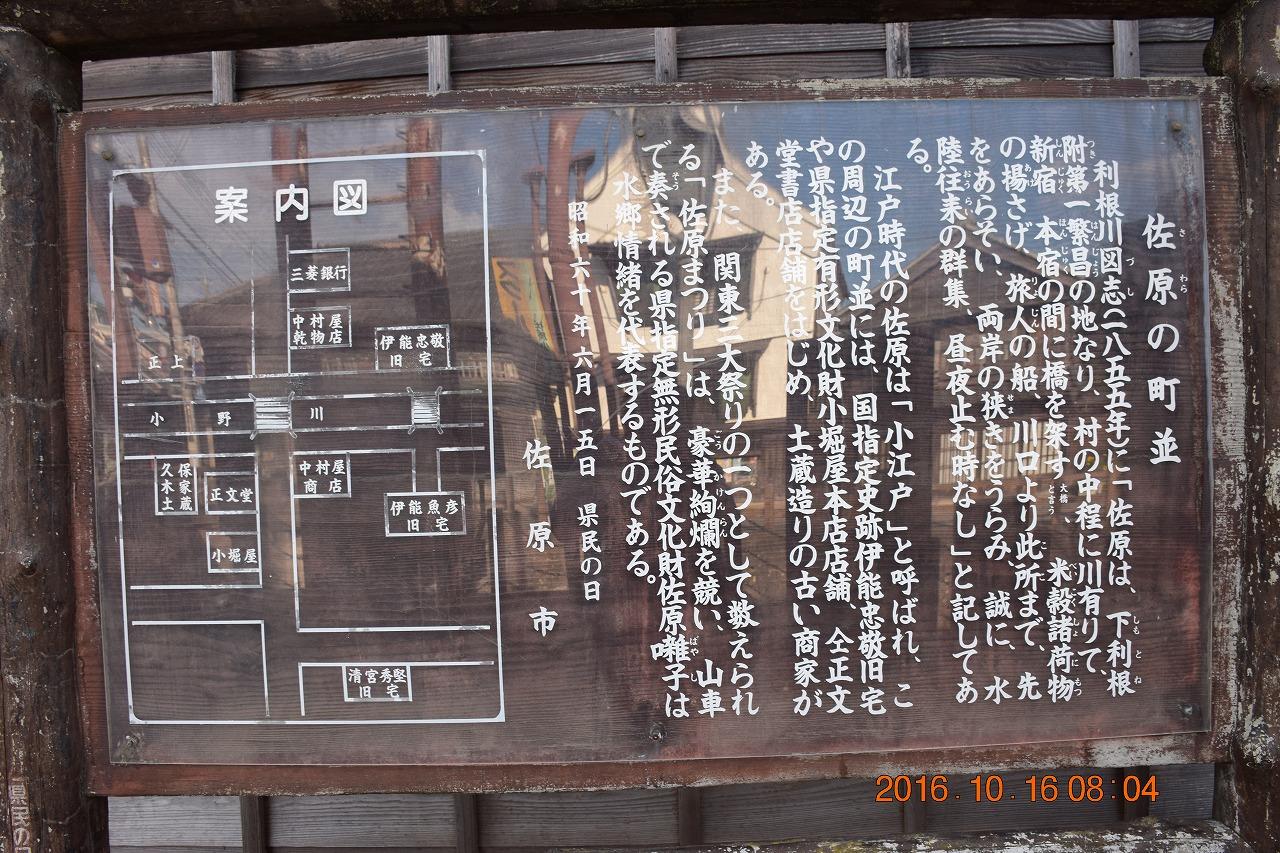 佐原の町並
利根川図志(一八五五年)に「佐原は、下利根
附第一繁昌の地なり、村の中程に川有りて、
新宿、本宿の間に橋を架す(大橋と言う)、米穀諸荷物
の揚さげ、旅人の船、川口より此所まで、先
をあらそい、両岸の狭きをうらみ、誠に、水
陸往来の群集、昼夜止む時なし」と記してあ
る。
江戸時代の佐原は「小江戸」と呼ばれ、こ
の周辺の町並には、国指定史跡伊能忠敬旧宅
や県指定有形文化財小堀屋本店店舗、仝正文
堂書店店舗をはじめ、土蔵造りの古い商家が
ある。
また、関東三大祭りの一つとして数えられ
る「佐原まつり」は、豪華絢爛を競い、山車
で奏される県指定無形民俗文化財佐原囃子は
水郷情緒を代表するものである。
昭和六十年六月一五日 県民の日
佐原市
案内図
三菱銀行
中村屋
乾物店
伊能忠敬
旧宅
正上
小野川
久保
木家
土蔵
正文堂
中村屋
商店
伊能魚彦
旧宅
小堀屋
清宮秀堅
旧宅
県民の
2016.10.16 08:04